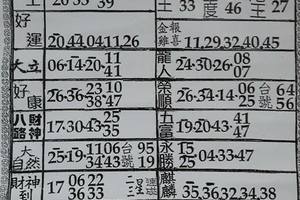 土 26 33 39 土 33 度 46 主 27
好運 20,44,04,11,26 金雞報喜 11,29,32,40,45
大立 06·14·20·11 41 龍人 24·30·26·08 07
好康 26·36·23 10 38 08 47 榮順 26·34·14 06 26 台號 64 56
八路財神 17·30·43 25 35 五富 19·20·43 41 47
大自然 25·19 11 06 34 43 台號 95 19 永勝 15 25·04·33·47
財神到 17 06 22 36 33 二星 麒麟 35,36,32,34,38